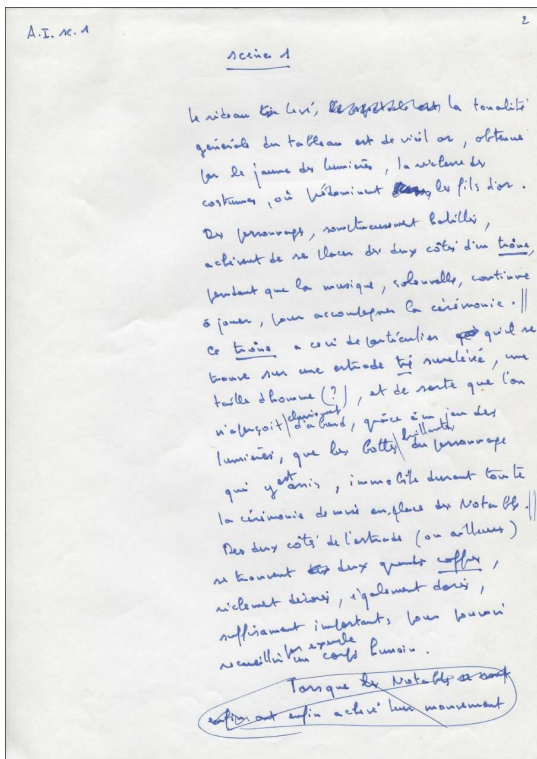 A.I. sc. 1
2
scène 1
Le rideau levé, la tonalité
générale du tableau est de vieil or, obtenue
par le jaune des lumières, la richesse des
costumes, où prédominent les fils d'or.
Des personnages, somptueusement habillés,
achèvent de se placer des deux côtés d'un trône,
pendant que la musique, solennelle, continue
à jouer, pour accompagner la cérémonie. ||
Ce trône a ceci de particulier qu'il se
trouve sur une estrade très surélevée, une
taille d'homme (?), et de sorte que l'on
n'aperçoit clairement d'abord, grâce à un jeu des
lumières, que les bottes brillantes du personnage
qui y est assis, immobile durant toute
la cérémonie de mise en place des Notables. ||
Des deux côtés de l'estrade (ou ailleurs)
se trouvent deux grands coffres,
richement décorés, également dorés,
suffisament importants pour pouvoir
recueillir par exemple un corps humain.
Lorsque les Notables se sont
enfin ont enfin achevé leur mouvement